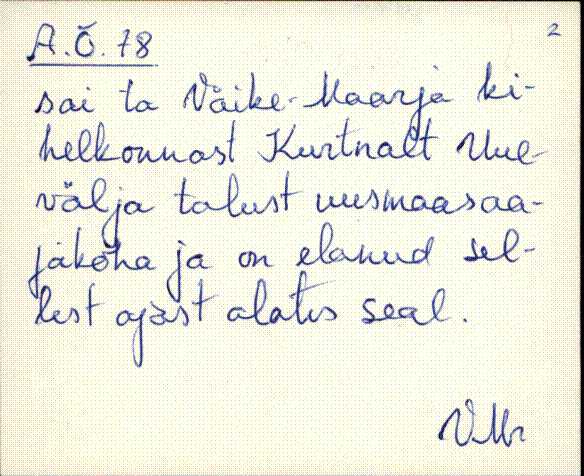 2
A.Õ. 78
sai ta Väike-Maarja ki-
helkonnast Kurtnalt Uue-
välja talust uusmaasaa-
jakoha ja on elanud sel-
lest ajast alates seal.
VMr